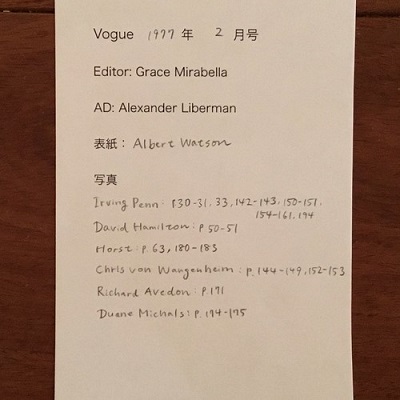 Vogue 1977 年 2 月号
Editor: Grace Mirabella
AD: Alexander Liberman
表紙： Albert Watson
写真
Irving Penn: P.30-31, 33, 142-143, 150-151,
154-161, 194
David Hamilton: P.50-51
Horst: P.63, 180-183
Chris von Wangenheim: P.144-149, 152-153
Richard Avedon: P.171
Duane Michals: P.174-175